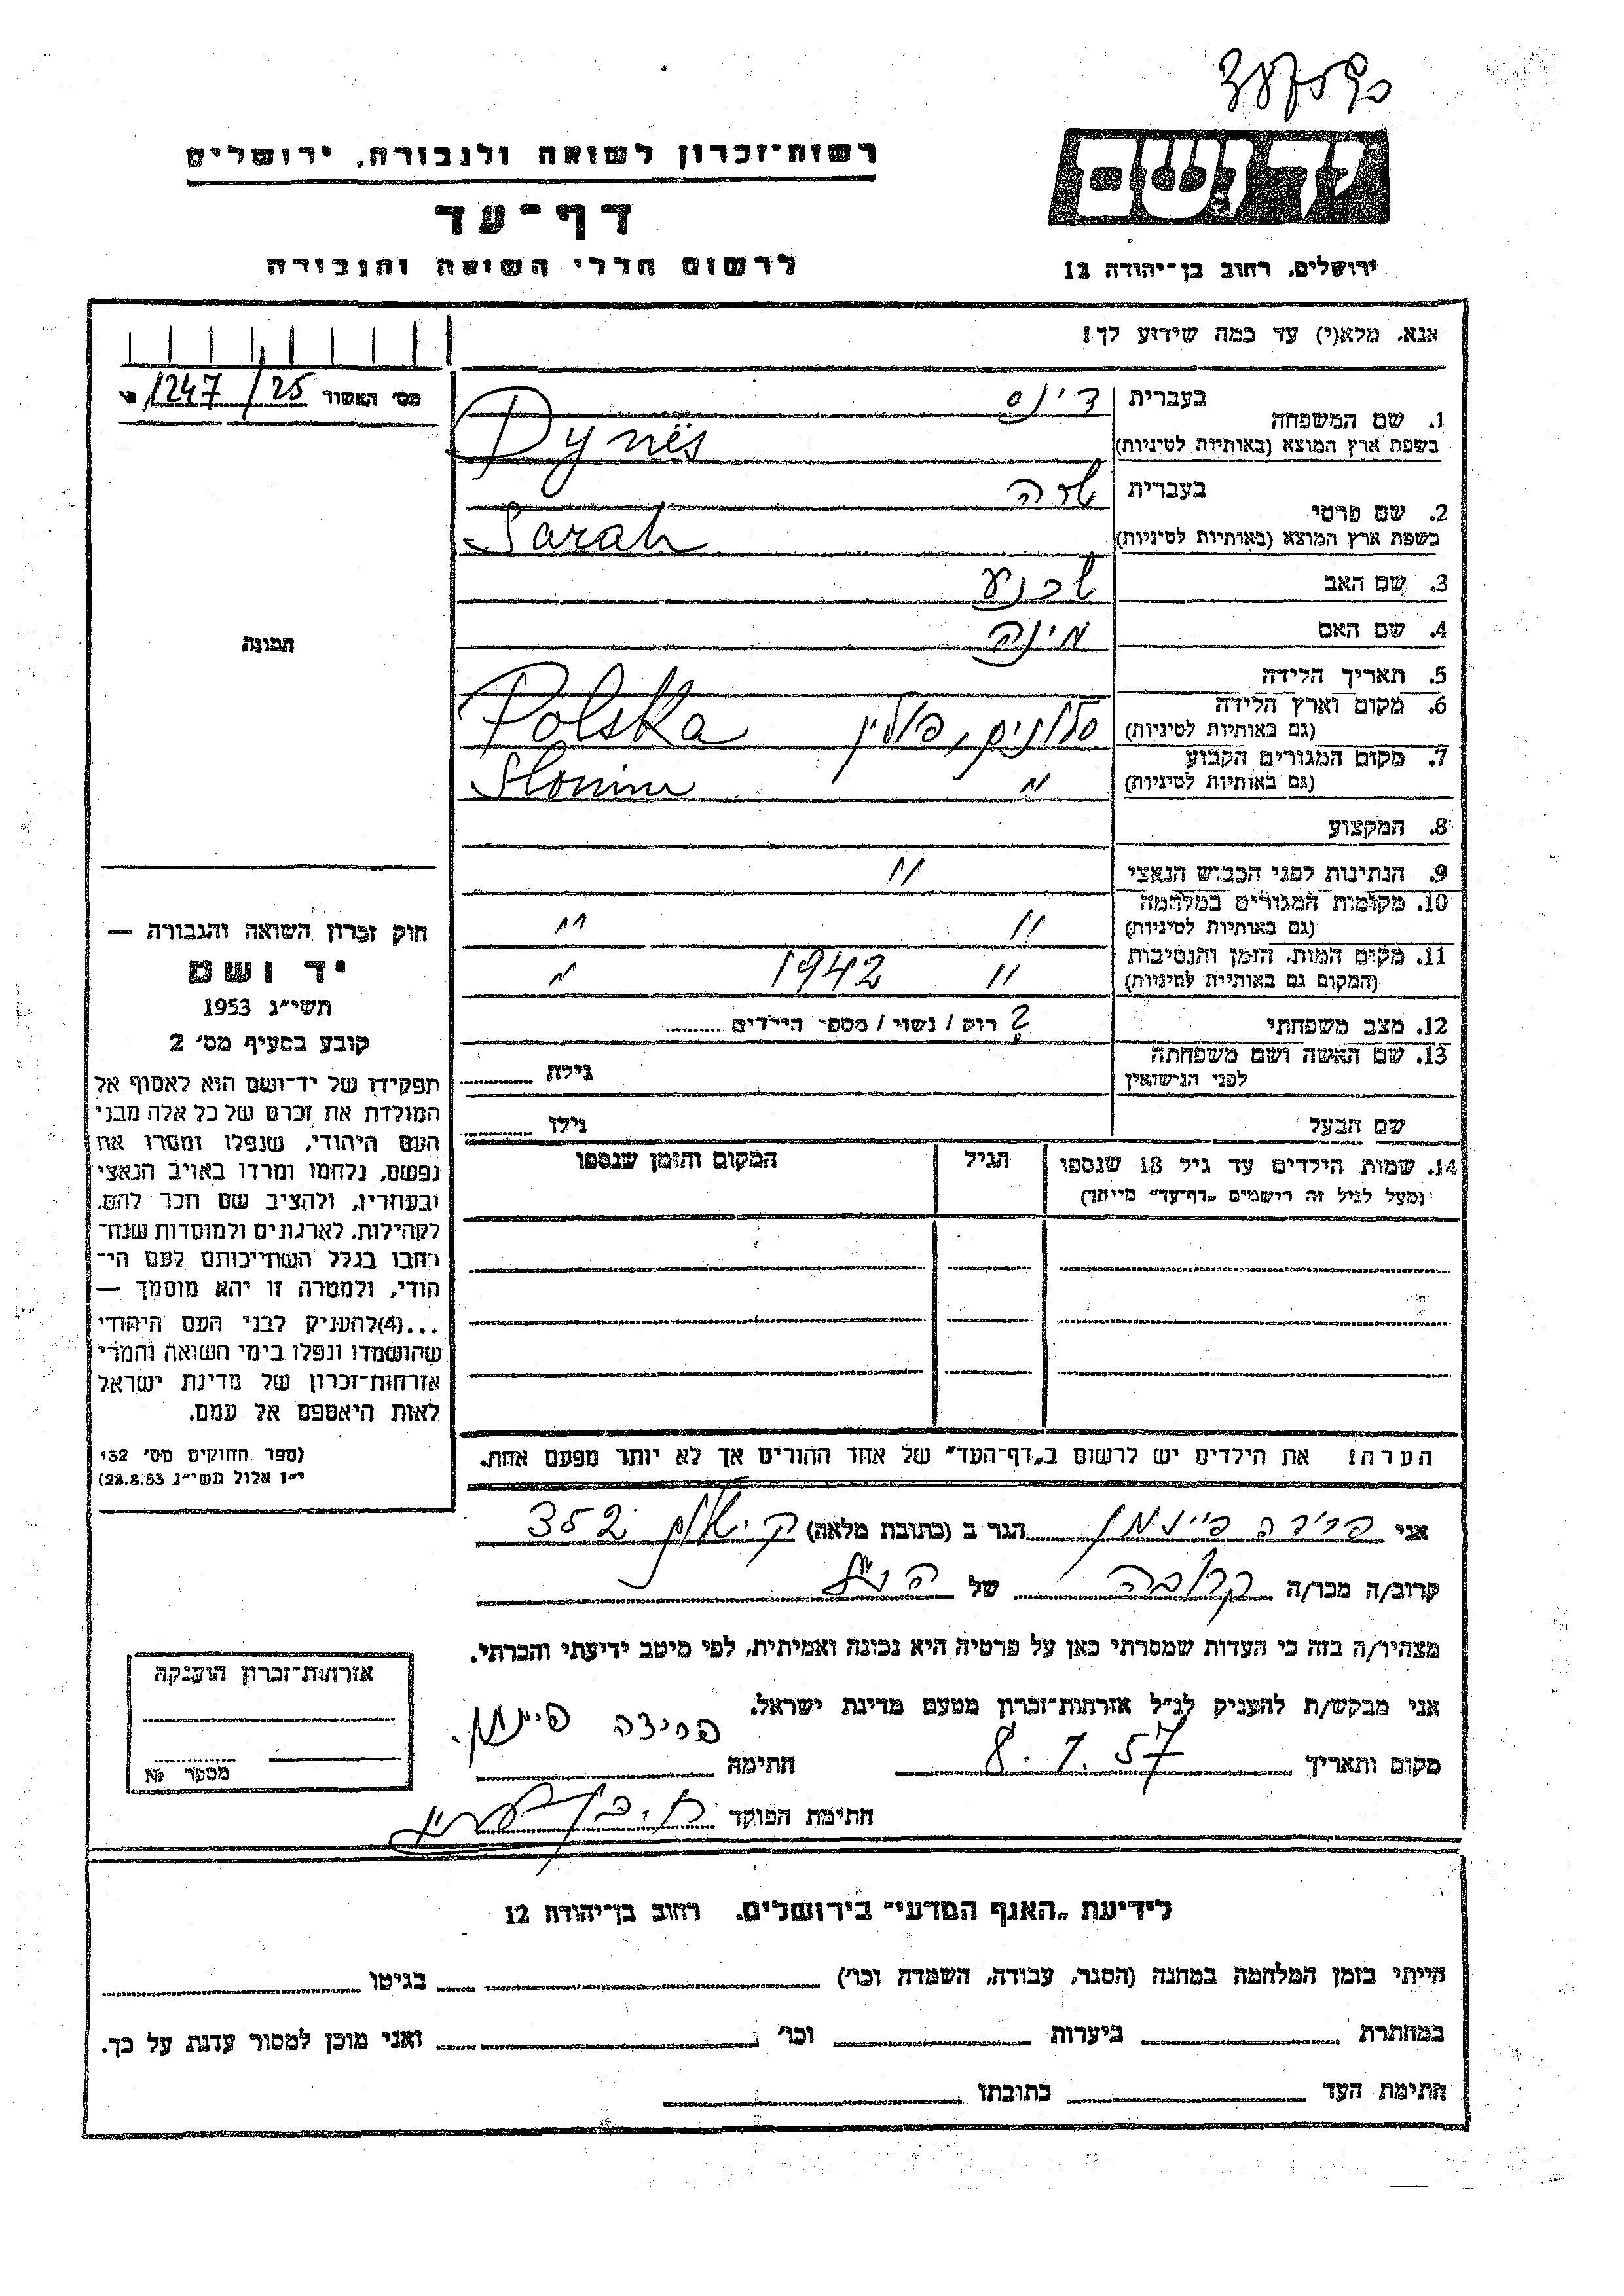 רשות־זכרון לשואה ולגבורה, ירושלים
יד ושם
דף־עד
לרשום חללי השואה והגבורה
ירושלים, רחוב בן־יהודה 12
אנא, מלא(י) עד כמה שידוע לך!
מס׳ האשור 25/1247
1. שם המשפחה בעברית דינס
בשפת ארץ המוצא (באותיות לטיניות) Dynës
2. שם פרטי בעברית שרה
בשפת ארץ המוצא (באותיות לטיניות) Sarah
3. שם האב שכנע
4. שם האם מינה
תמונה
5. תאריך הלידה
6. מקום וארץ הלידה (גם באותיות לטיניות) סלונים, פולין Polska
7. מקום המגורים הקבוע (גם באותיות לטיניות) " Slonim
8. המקצוע
9. הנתינות לפני הכבוש הנאצי "
10. מקומות המגורים במלחמה (גם באותיות לטיניות) " "
11. מקום המות, הזמן והנסיבות (המקום גם באותיות לטיניות) " 1942 "
12. מצב משפחתי ? רוק / נשוי / מספר הילדים
13. שם האשה ושם משפחתה לפני הנישואין גילה
שם הבעל גילו
14. שמות הילדים עד גיל 18 שנספו הגיל המקום והזמן שנספו
(מעל לגיל זה רישמים „דף־עד" מיוחד)
הערה! את הילדים יש לרשום ב„דף־העד" של אחד ההורים אך לא יותר מפעם אחת.
חוק זכרון השואה והגבורה —
יד ושם
תשי״ג 1953
קובע בסעיף מס׳ 2
תפקידו של יד־ושם הוא לאסוף אל
המולדת את זכרם של כל אלה מבני
העם היהודי, שנפלו ומסרו את
נפשם, נלחמו ומרדו באויב הנאצי
ובעוזריו, ולהציב שם וזכר להם,
לקהילות, לארגונים ולמוסדות שנח־
רבו בגלל השתייכותם לעם הי־
הודי, ולמטרה זו יהא מוסמך —
...(4)להעניק לבני העם היהודי
שהושמדו ונפלו בימי השואה והמרי
אזרחות־זכרון של מדינת ישראל
לאות היאספם אל עמם.
(ספר החוקים מס׳ 132
י״ז אלול תשי״ג 28.8.53)
אני פרידה פיינמן הגר ב (כתובת מלאה) 352
קרוב/ה מכר/ה קרובה של הנ״ל
מצהיר/ה בזה כי העדות שמסרתי כאן על פרטיה היא נכונה ואמיתית, לפי מיטב ידיעתי והכרתי.
אני מבקש/ת להעניק לנ״ל אזרחות־זכרון מטעם מדינת ישראל.
מקום ותאריך 8.7.57 חתימה
חתימת הפוקד
אזרחות־זכרון הוענקה
מספר №
לידיעת „האגף המדעי" בירושלים, רחוב בן־יהודה 12
הייתי בזמן המלחמה במחנה (הסגר, עבודה, השמדה וכו׳) בגיטו
במחתרת ביערות וכו׳ ואני מוכן למסור עדות על כך.
חתימת העד כתובתו